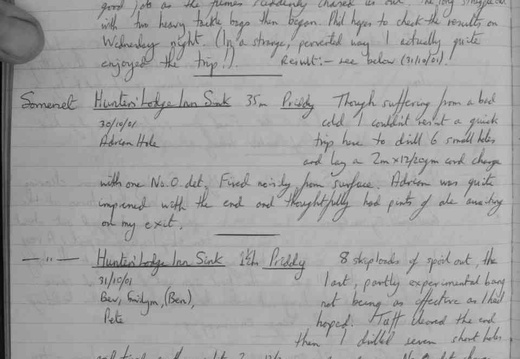 good job as the fumes suddenly chased us out. The long struggle out
with two heavy tackle bags then began. Phil hopes to check the results on
Wednesday night. (In a strange, perverted way I actually quite
enjoyed the trip!). Result:- see below (31/10/01).
Somerset Hunters' Lodge Inn Sink 35m Priddy Though suffering from a bad
30/10/01 cold I couldn't resist a quick
Adrian Hole trip here to drill 6 small holes
and lay a 2m x 12/20gm cord charge
with one No.0 det. Fired noisily from surface. Adrian was quite
impressed with the end and thoughtfully had pints of ale awaiting
on my exit.
—"— Hunters' Lodge Inn Sink Priddy 8 skiploads of spoil out, the
31/10/01 last, partly experimental bang
Bev, (Ben), not being as effective as I had
Pete hoped. cleared the end
then I drilled seven short holes